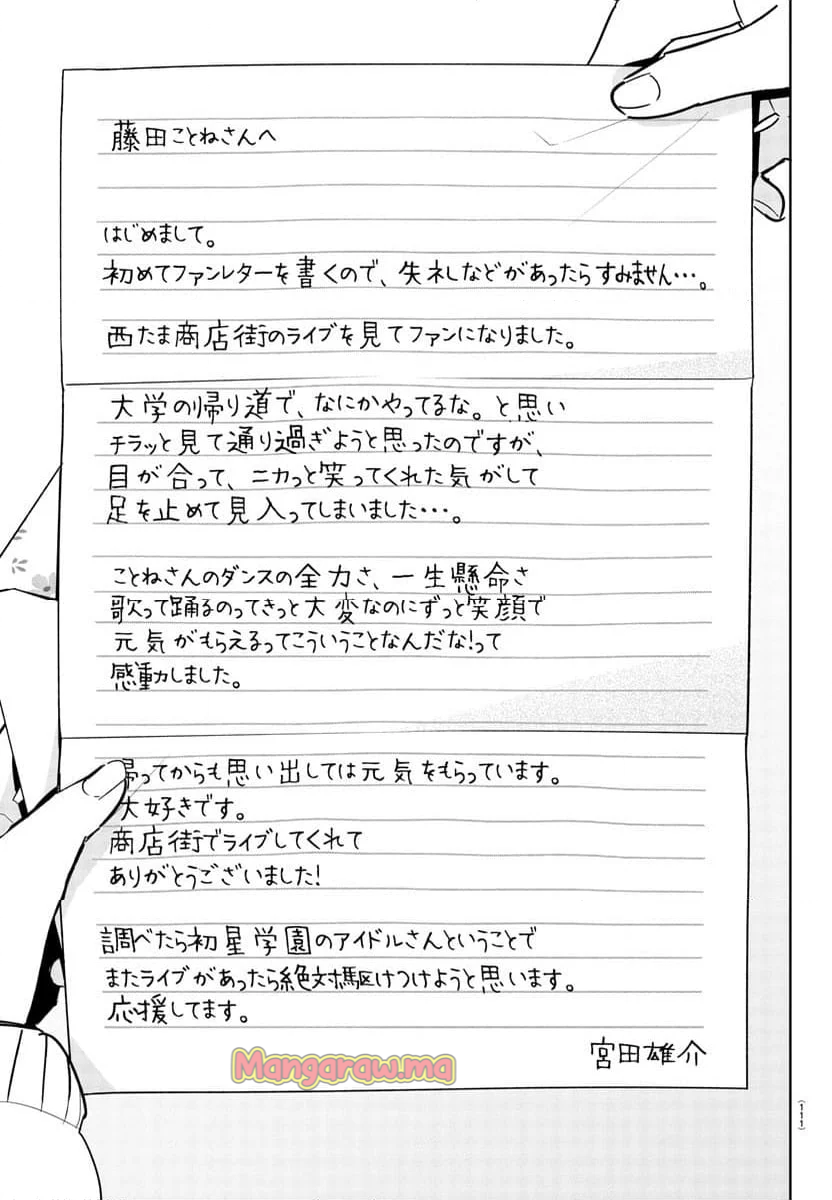 藤田ことねさんへ
はじめまして。
初めてファンレターを書くので、失礼などがあったらすみません…。
西たま商店街のライブを見てファンになりました。
大学の帰り道で、なにかやってるな。と思い
チラッと見て通り過ぎようと思ったのですが、
目が合って、ニカっと笑ってくれた気がして
足を止めて見入ってしまいました…。
ことねさんのダンスの全力さ、一生懸命さ
歌って踊るのってきっと大変なのにずっと笑顔で
元気がもらえるってこういうことなんだな!って
感動しました。
帰ってからも思い出しては元気をもらっています。
大好きです。
商店街でライブしてくれて
ありがとうございました!
調べたら初星学園のアイドルさんということで
またライブがあったら絶対駆けつけようと思います。
応援してます。
宮田雄介
Mangaraw.ma
(111)